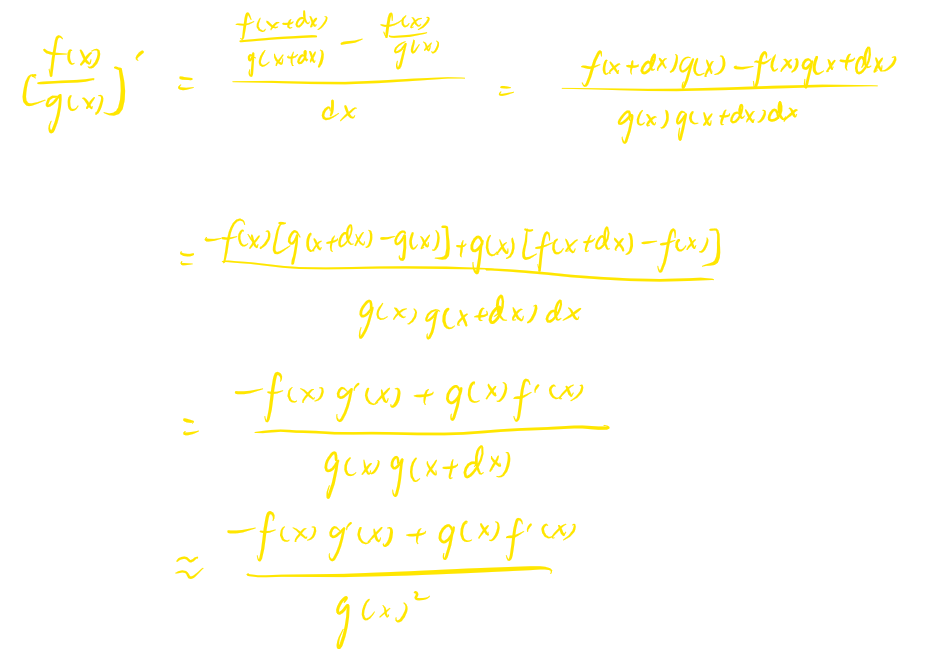 [f(x)/g(x)]' = (f(x+dx)/g(x+dx) - f(x)/g(x))/dx = (f(x+dx)g(x) - f(x)g(x+dx))/(g(x)g(x+dx)dx)
= (-f(x)[g(x+dx) - g(x)] + g(x)[f(x+dx) - f(x)])/(g(x)g(x+dx)dx)
= (-f(x)g'(x) + g(x)f'(x))/(g(x)g(x+dx))
≈ (-f(x)g'(x) + g(x)f'(x))/g(x)²